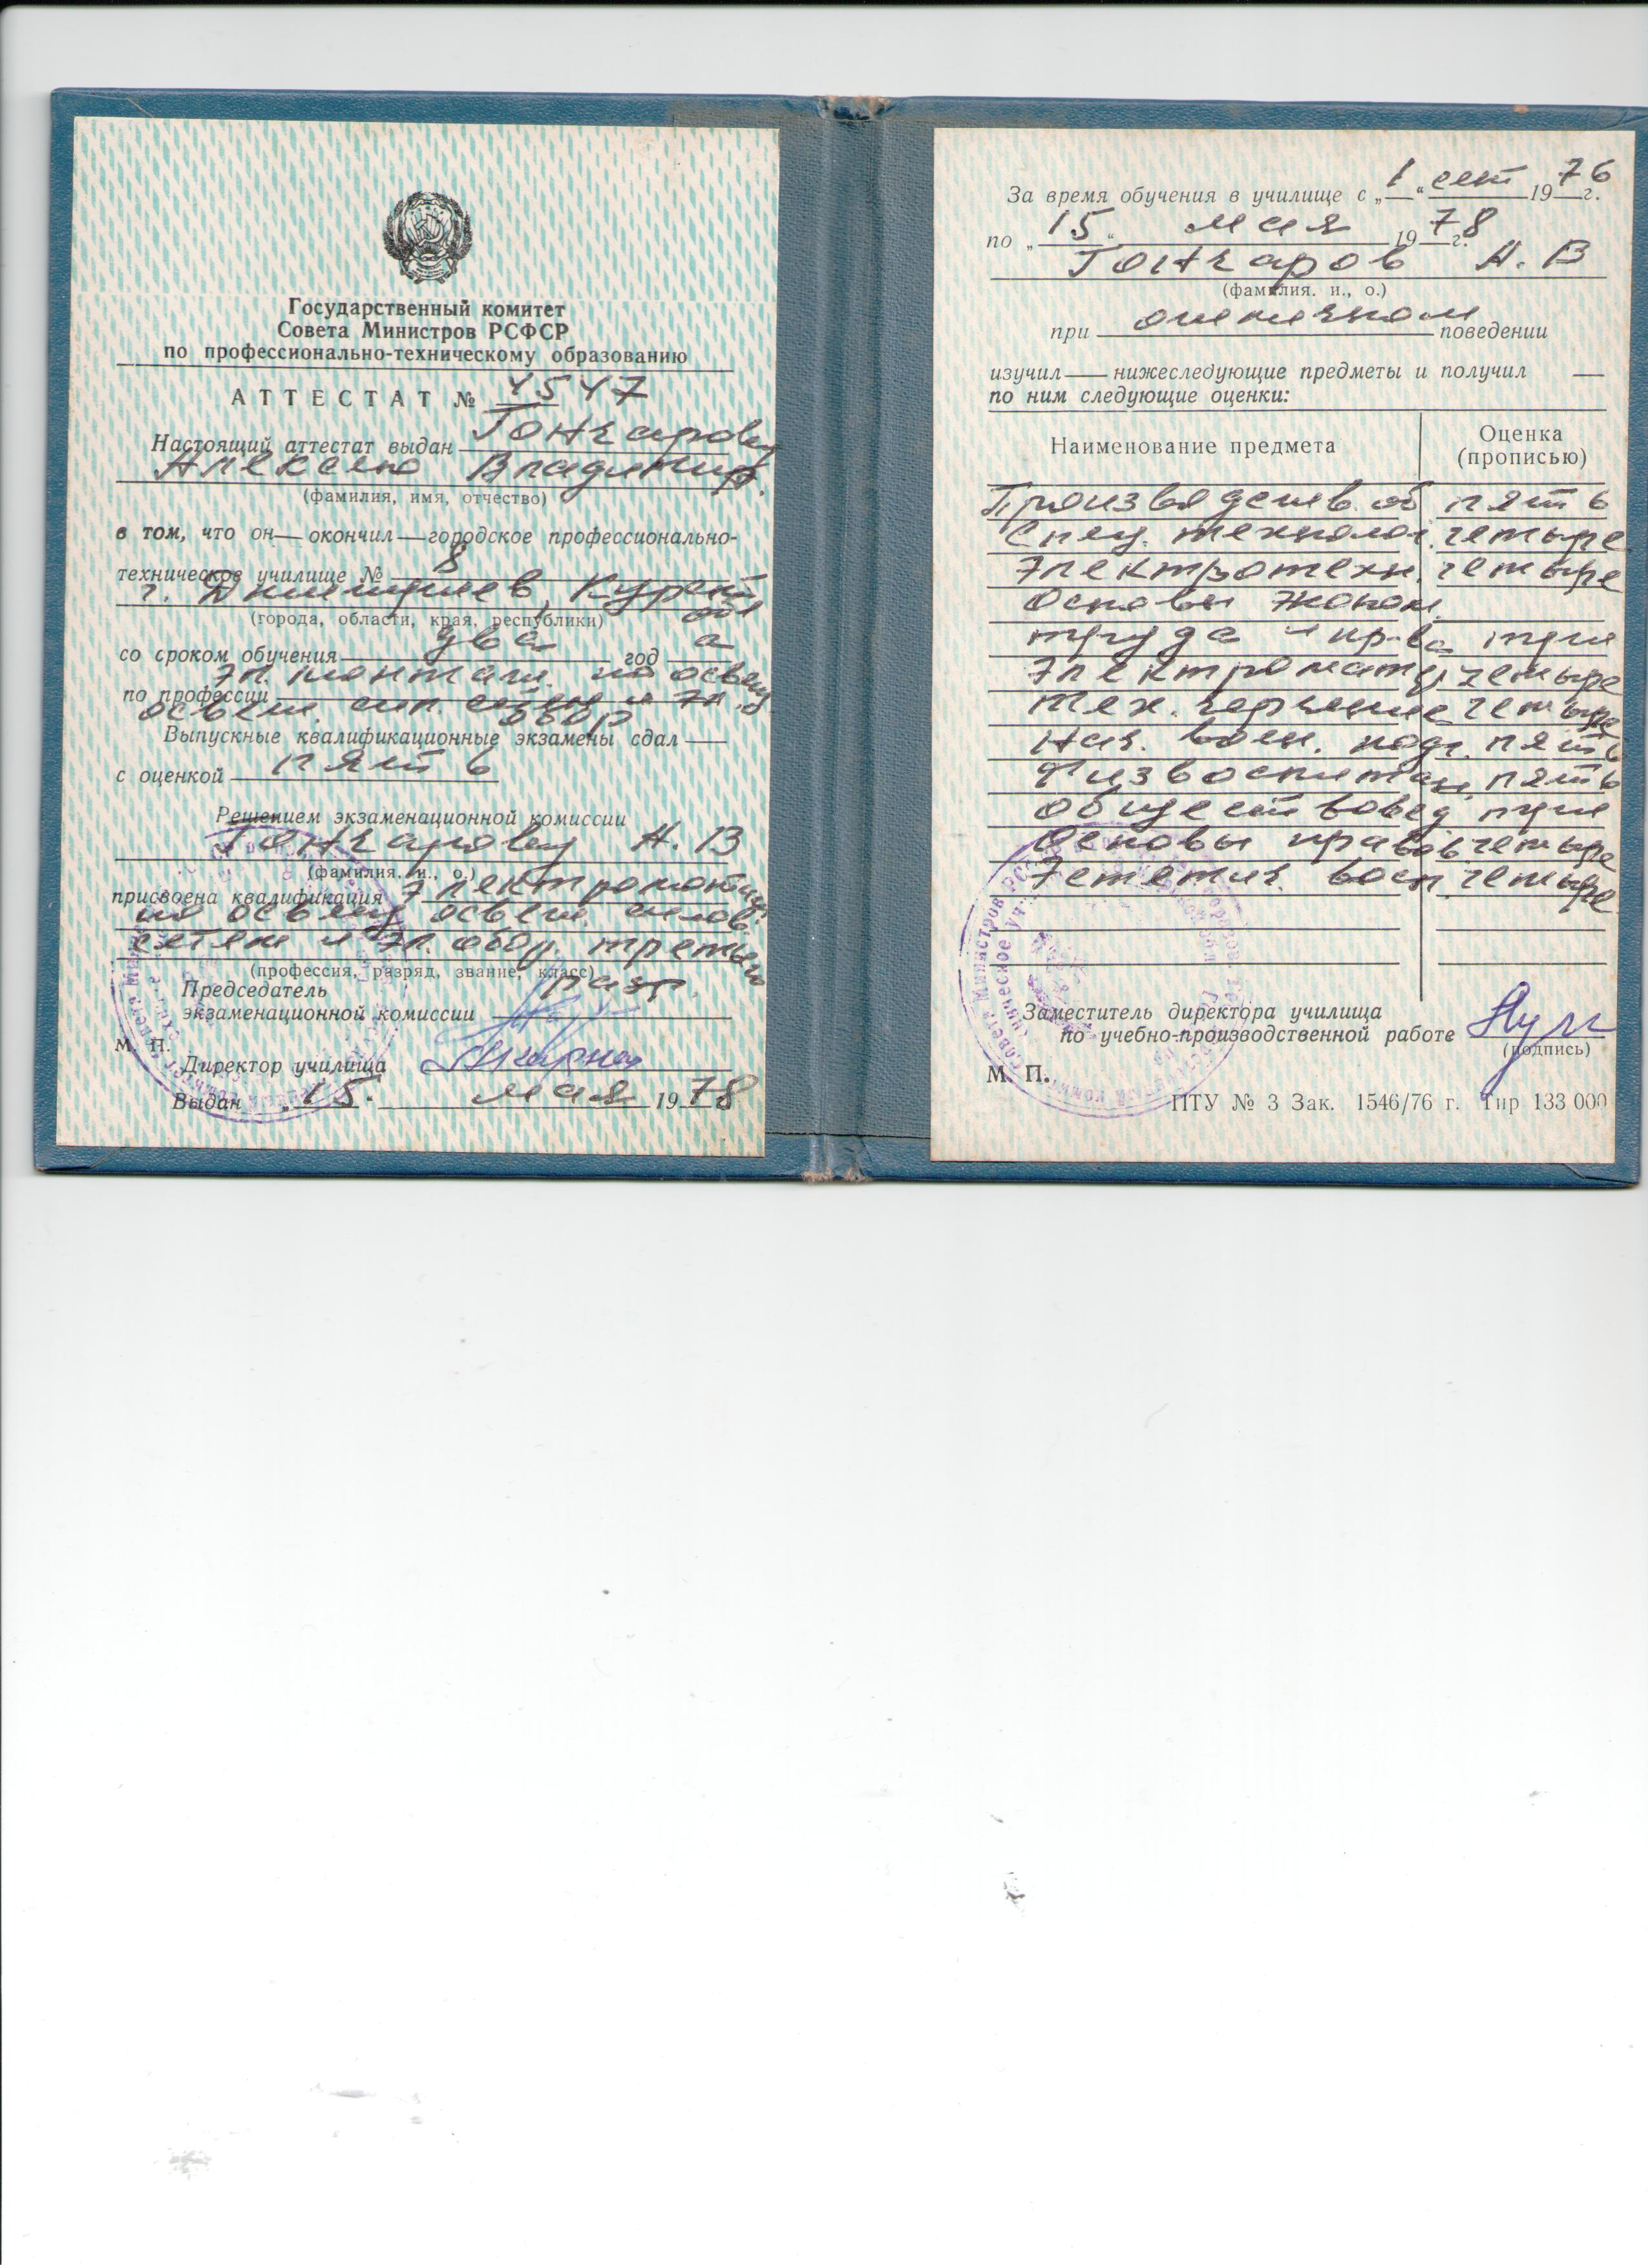 Государственный комитет
Совета Министров РСФСР
по профессионально-техническому образованию
АТТЕСТАТ № 4547
Настоящий аттестат выдан Гончарову
Алексею Владимир.
(фамилия, имя, отчество)
в том, что он— окончил—городское профессионально-
техническое училище № 8
г. Дмитриев, Курской
обл
(города, области, края, республики)
со сроком обучения два год а
эл. монтаж. по освещ
по профессии
освещ. сил. сетям и эл.
обор
Выпускные квалификационные экзамены сдал —
с оценкой пять
Решением экзаменационной комиссии
Гончарову А. В
(фамилия. и., о.)
присвоена квалификация Электромонтаж.
по освещ освещ. силов.
сетям и эл. обор. третьего
(профессия, разряд, звание, класс)
разр.
Председатель
экзаменационной комиссии
М. П.
Директор училища
Выдан „15. мая 1978
За время обучения в училище с „1“ сент 1976 г.
по „15“ мая 1978 г.
Гончаров А. В
(фамилия. и., о.)
при отличном поведении
изучил — нижеследующие предметы и получил —
по ним следующие оценки:
Наименование предмета Оценка (прописью)
Производств. об пять
Спец. технолог. четыре
Электротехн. четыре
Основы эконом.
труда и пр-ва три
Электромат. четыре
Тех. черчение четыре
Нач. воен. подг. пять
Физвоспитан. пять
Обществовед три
Основы правов четыре
Эстетич. восп. четыре
Заместитель директора училища
по учебно-производственной работе
(подпись)
М. П.
ПТУ № 3 Зак. 1546/76 г. Тир 133 000